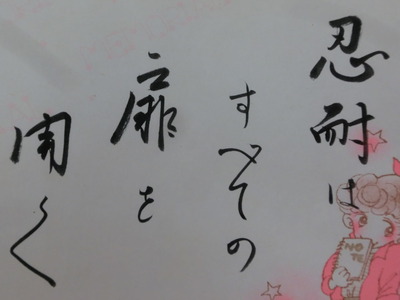 忍耐は
すべての
扉を
開く
NOTE